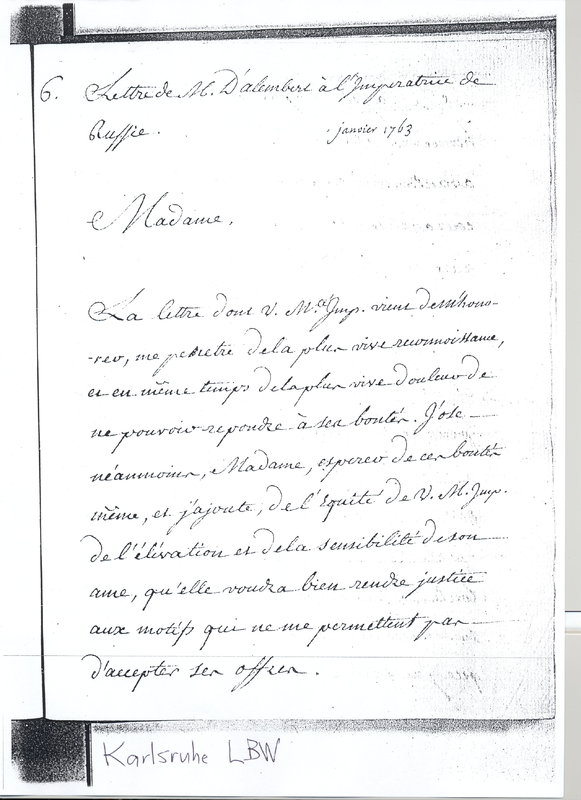 6. Lettre de M. D'alembert à l'Imperatrice de
Russie. janvier 1763
Madame,
La lettre dont V. M.té Imp. vient de m'hono-
-rer, me penetre de la plus vive reconnoissance,
et en même temps de la plus vive douleur de
ne pouvoir repondre à ses bontés. J'ose
néanmoins, Madame, esperer de ces bontés
même, et j'ajoute, de l'Equité de V. M. Imp.
de l'élévation et de la sensibilité de son
ame, qu'elle voudra bien rendre justice
aux motifs qui ne me permettent pas
d'accepter ses offres.
Karlsruhe LBW